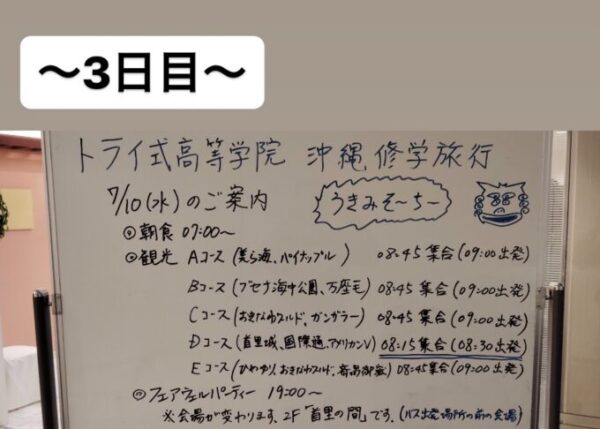 〜3日目〜
トライ式高等学院 沖縄修学旅行
7/10(水)のご案内
うきみそ〜ち〜
◎朝食 07:00〜
◎観光 Aコース(美ら海、パイナップル) 08:45集合(09:00出発)
Bコース(ブセナ海中公園、万座毛) 08:45集合(09:00出発)
Cコース(おきなわワールド、ガンガラー) 08:45集合(09:00出発)
Dコース(首里城、国際通、アメリカンV) 08:15集合(08:30出発)
Eコース(ひめゆり、おきなわワールド、斎場御嶽) 08:45集合(09:00出発)
◎フェアウェルパーティー 19:00〜
※会場が変わります、2F「首里の間」です。(バス出発場所の前の会場)